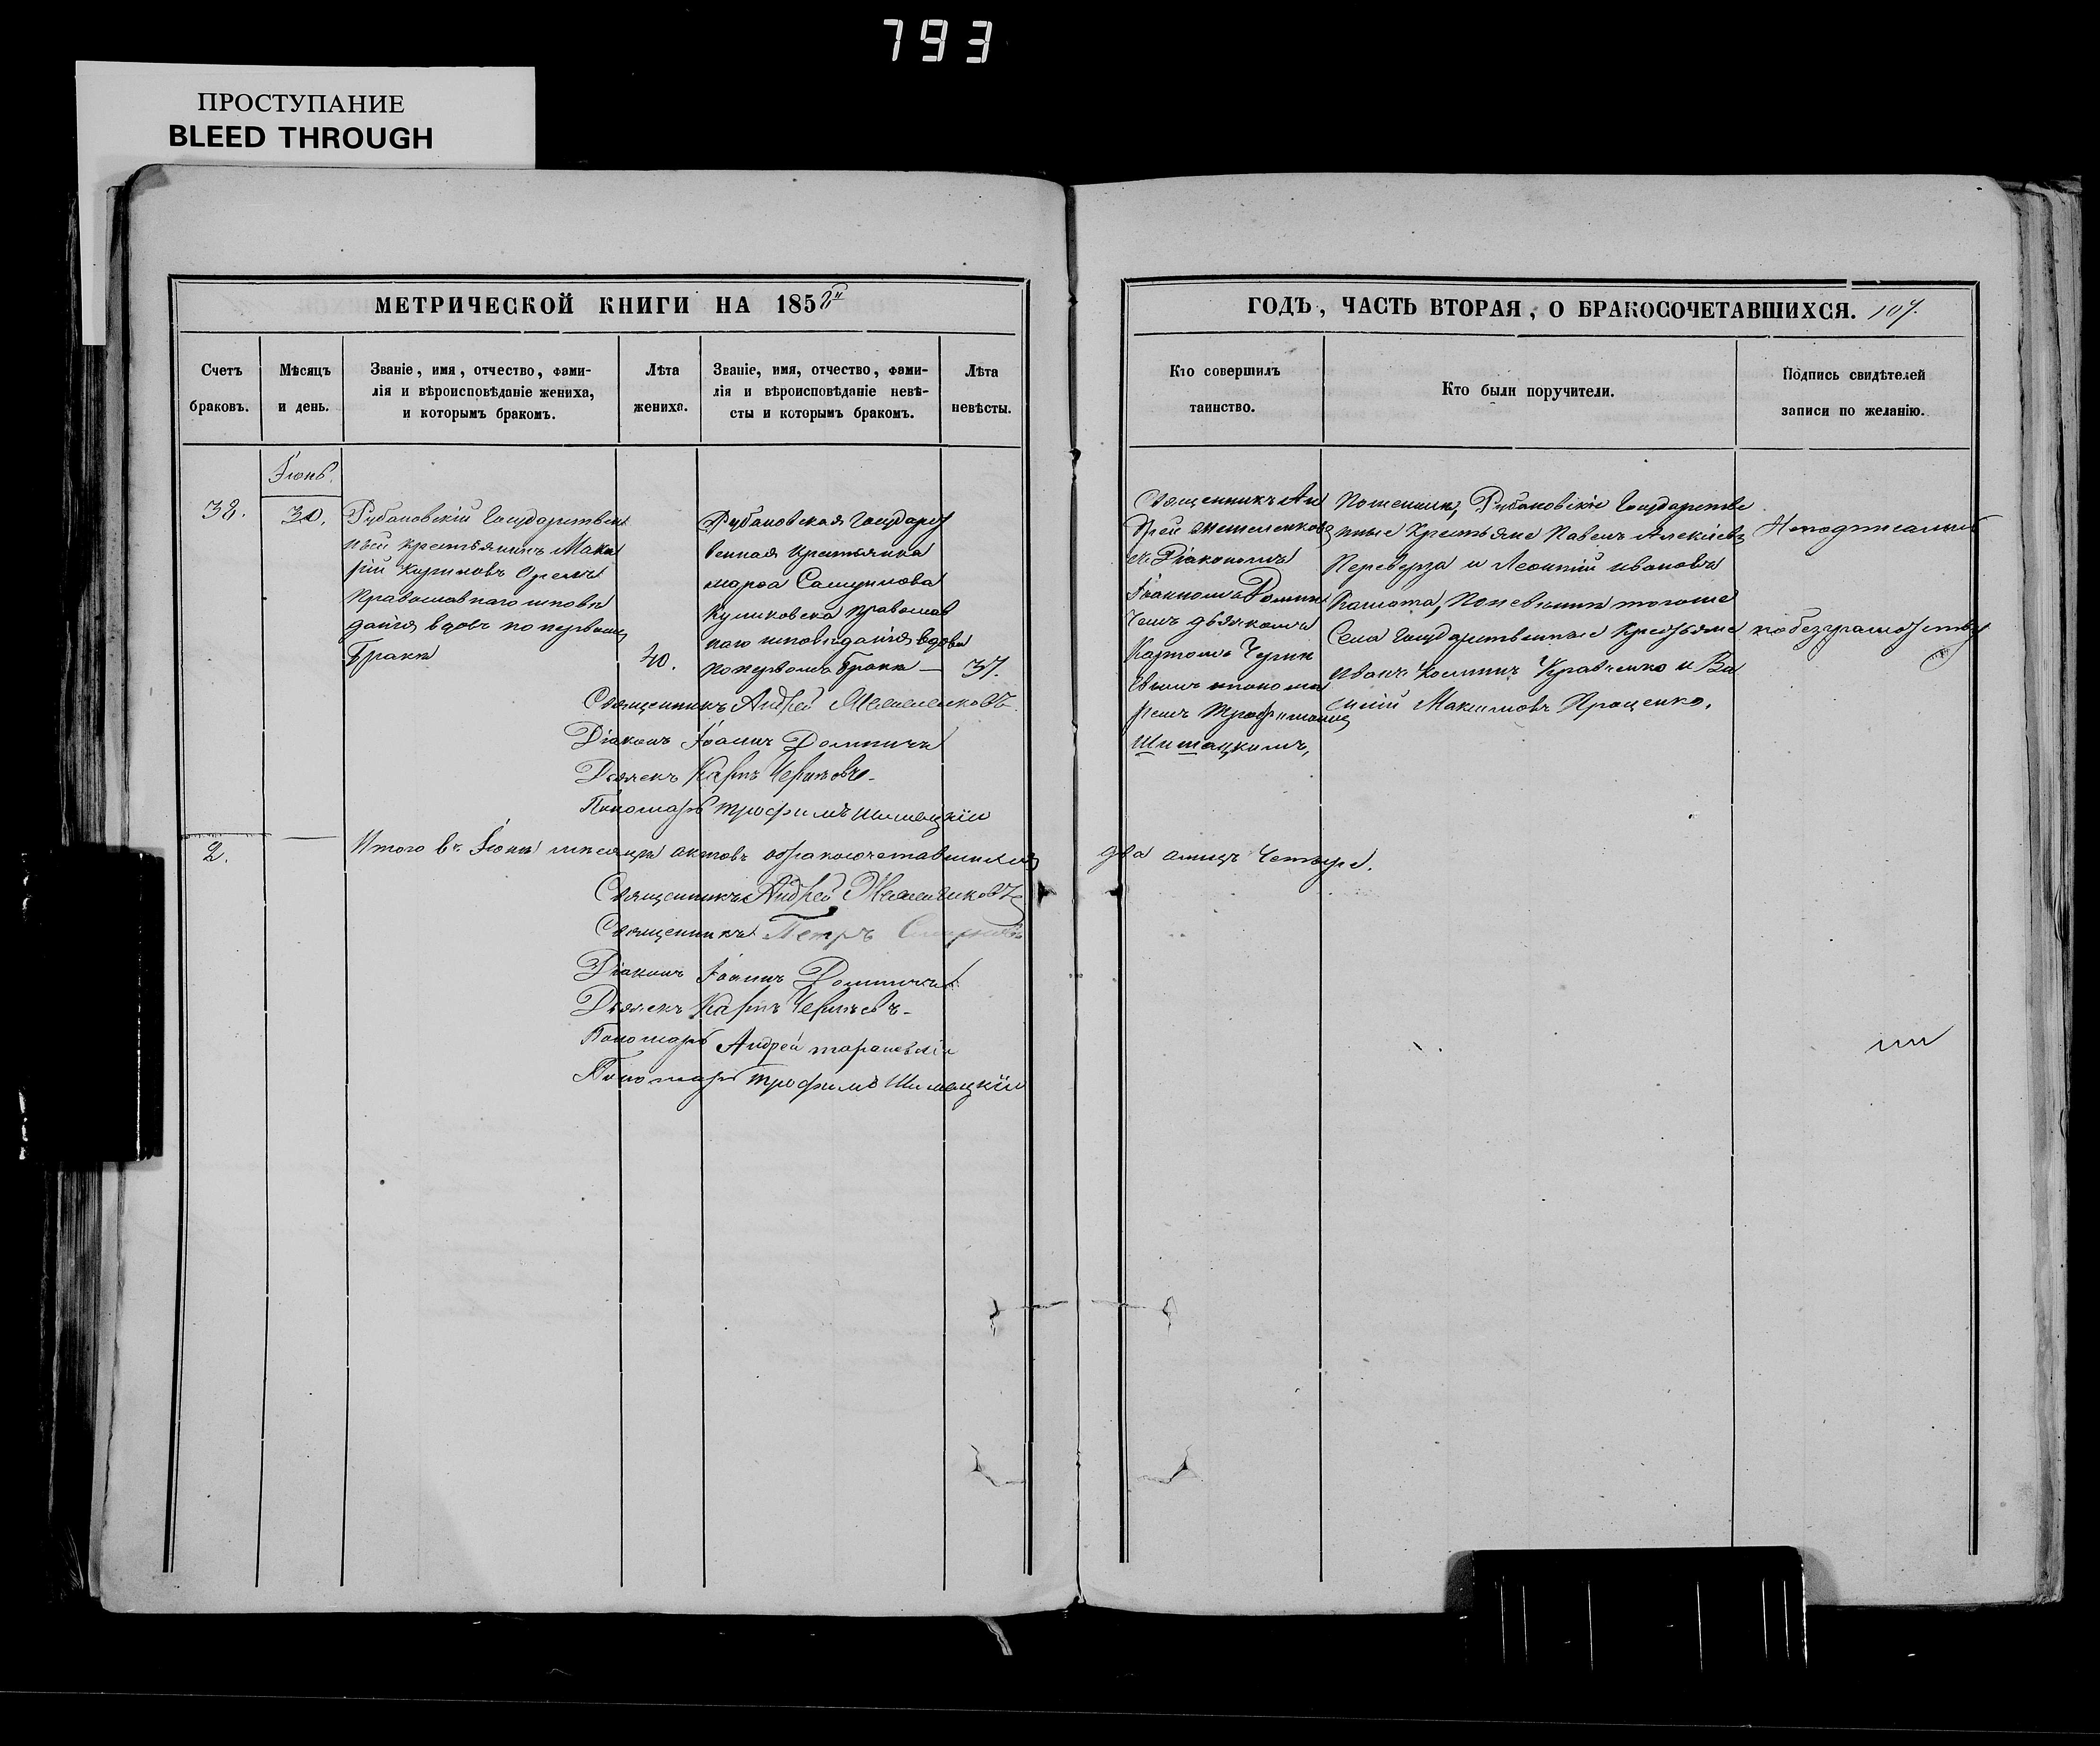 793
ПРОСТУПАНИЕ
BLEED THROUGH
МЕТРИЧЕСКОЙ КНИГИ НА 185
ГОДЪ, ЧАСТЬ ВТОРАЯ, О БРАКОСОЧЕТАВШИХСЯ. 107.
Счетъ
браковъ.
Мѣсяцъ
и день.
Званіе, имя, отчество, фами-
лія и вѣроисповѣданіе жениха,
и которымъ бракомъ.
Лѣта
жениха.
Званіе, имя, отчество, фами-
лія и вѣроисповѣданіе невѣ-
сты и которымъ бракомъ.
Лѣта
невѣсты.
Кто совершилъ
таинство.
Кто были поручители.
Подпись свидѣтелей
записи по желанію.
Іюнь.
38.
30.
Рубановскій Государствен
ный крестьянинъ Мака
рій Кириловъ
Православнаго исповѣ
данія вдовъ по первомъ
бракѣ
40.
Рубановская Государст
венная крестьянка
Марѳа
Куликовска Православ
наго исповѣданія вдова
по первомъ бракѣ —
37.
Священникъ Ан
дрей
съ Діакономъ
Іоанномъ Домни
чемъ дьячкомъ
Карпомъ Черня
вымъ понома
ремъ Трофимомъ
Шимацкимъ,
По женихѣ, Рубановскіе Государстве
нные Крестьяне Павелъ Алексіевъ
Переверза и Леонтій Ивановъ
по невѣстѣ тогоже
Села Государственные Крестьяне
Иванъ Кравченко и Ва
силій Максимовъ Проценко.
Неподписались
по безграмотству
Священникъ Андрей
Діаконъ Іоаннъ Домничъ
Дьячекъ Карпъ
Пономарь Трофимъ Шимацкій
2.
Итого въ Іюнѣ мѣсяцѣ актовъ обракосочетавшихся
два алицъ Четыре.
Священникъ Андрей
Священникъ Петръ
Діаконъ Іоаннъ Домничъ
Дьячекъ Карпъ
Пономарь Андрей
Пономарь Трофимъ Шимацкій